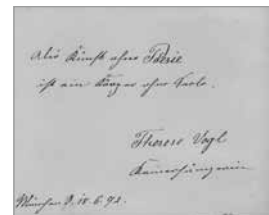 Die Kunst ohne Poesie
ist ein Körper ohne Seele.
Therese Vogl
Kammersängerin
München d. 10. 6. 92.